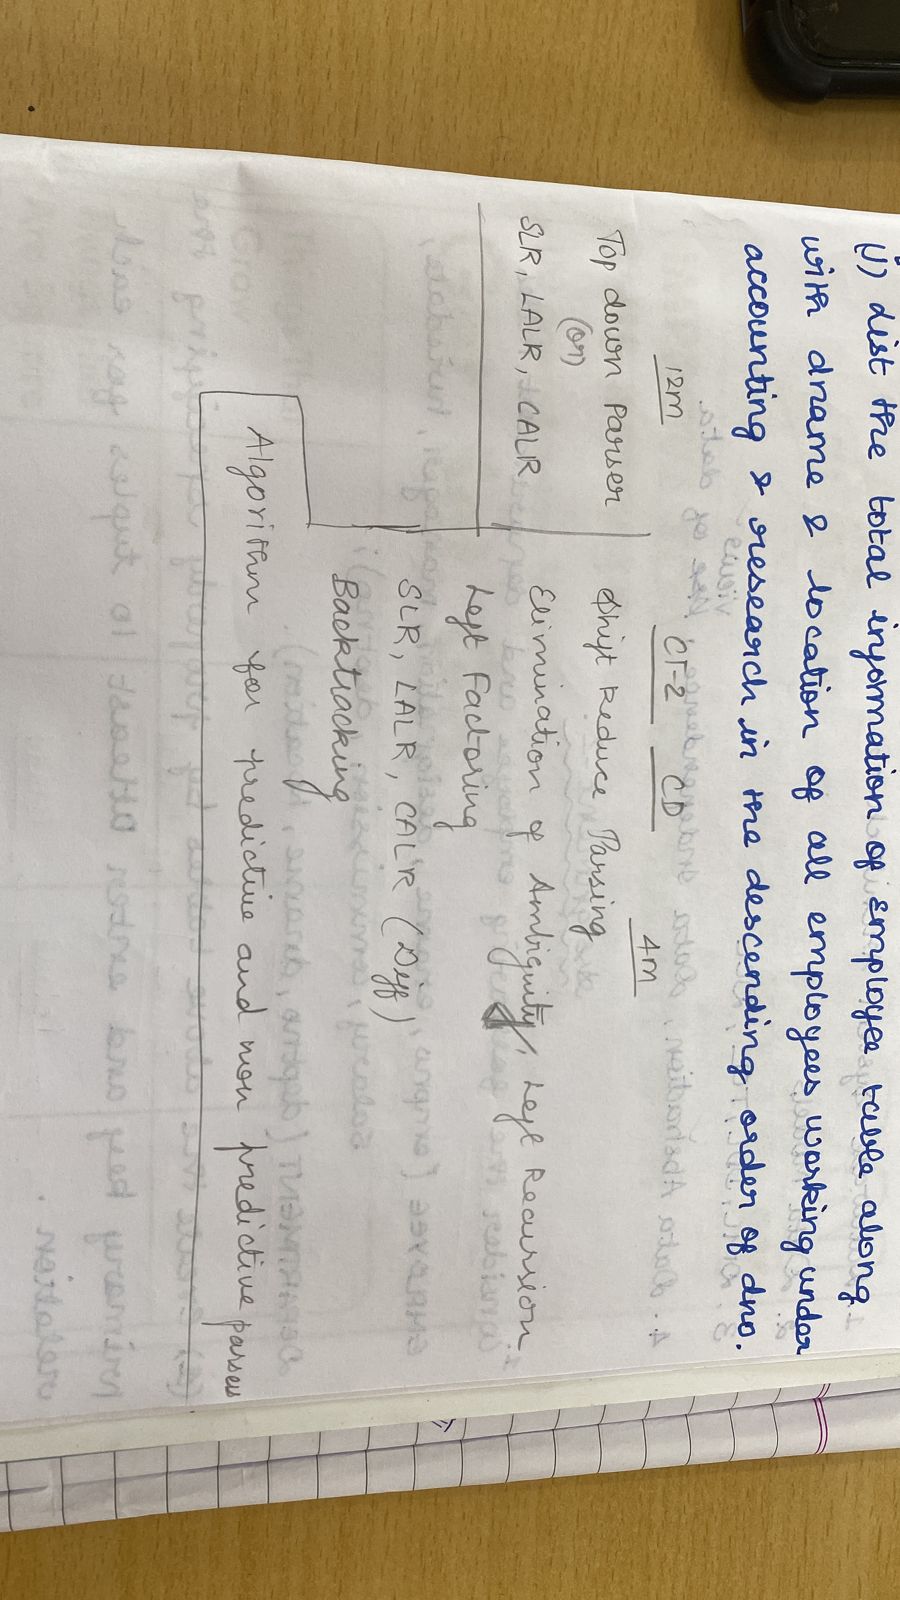 (J) List the total information of employee table along
with dname & location of all employees working under
accounting & research in the descending order of dno.
12m
CT-2 CD
4m
Top down Parser
(or)
SLR, LALR, CALR
Shift Reduce Parsing
Elimination of Ambiguity, Left Recursion
Left Factoring
SLR, LALR, CALR (Diff)
Backtracking
Algorithm for predictive and non predictive parser